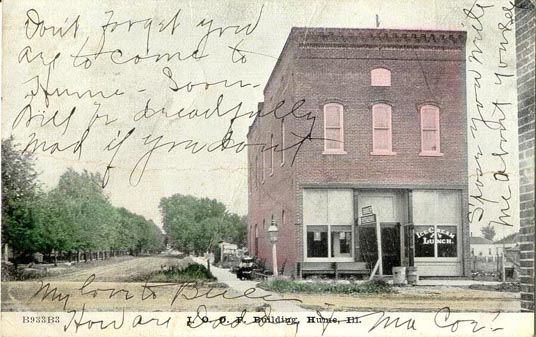 Don't forget you
are to come to
Hume - Soon -
Will be dreadfully
mad if you don't
Spose you write
me about yours
ICE CREAM
AND
LUNCH.
My love to Bill
B933B3
I. O. O. F. Building, Hume, Ill.
How are Dad & Ma Cox.